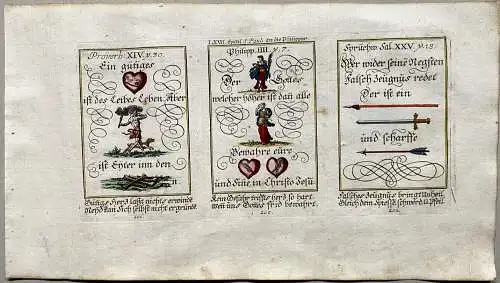 Proverb XIV. v. 30.
Ein gütiges
ist des Leibes Leben, Aber
ist Eyter um den
n.
Gütigs Herz lasst nichts
Neyd kan sich selbst nicht
LXVIII. Epist. S. Pauli an die Philipper.
Philipp. IIII. v. 7.
Der Gottes
welcher höher ist dañ alle
Bewahre eüre
und Siñe in Christo Jesu
Kein Gefahr triffts herz so hart
weil uns Gottes frid bewahrt.
Sprüchw. Sal. XXV. v. 18.
Wer wider seinē Negsten
Falsch Zeugnus redet
Der ist ein
und scharffe
Falsches Zeugnus bringt Unheil
Gleich dem Spiess, schwerd u. Pfeil.